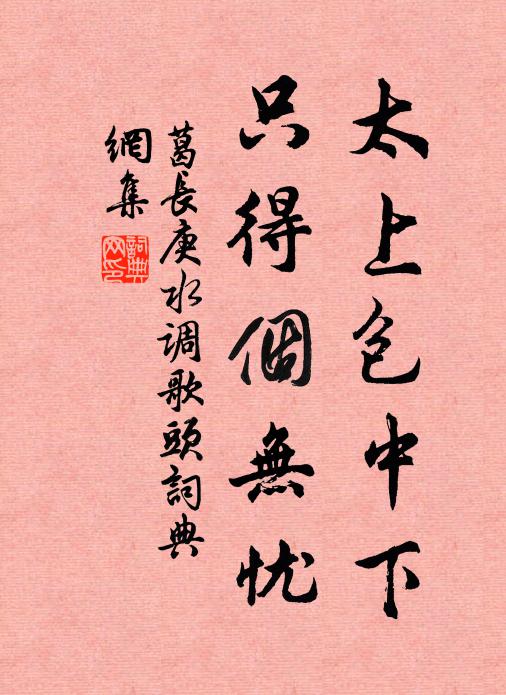 太上包中下
只得個無忧
葛長庚水调歌頭詞典
網集
詞典
网印